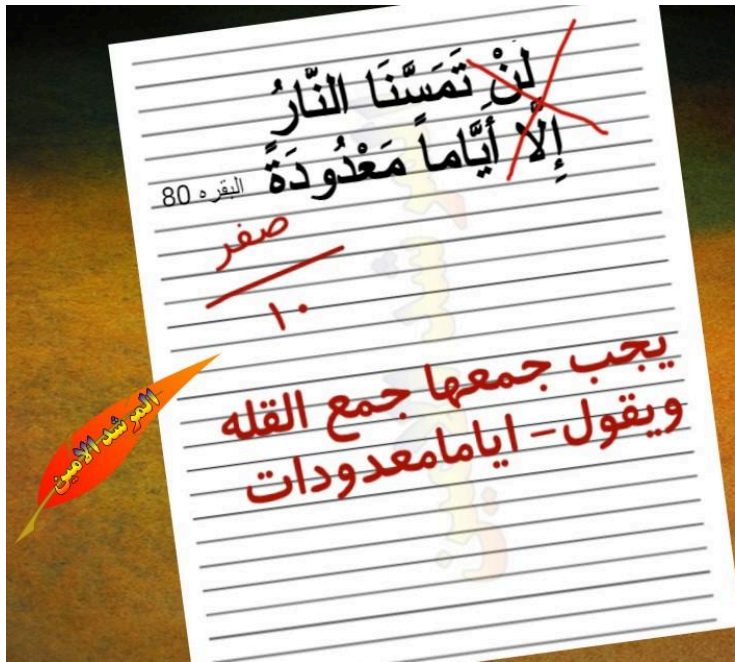 لَنْ تَمَسَّنَا النَّارُ
إِلَّا أَيَّاماً مَعْدُودَةً البقره 80
صفر
١٠
يجب جمعها جمع القله
ويقول - اياما معدودات
المرشد الامين